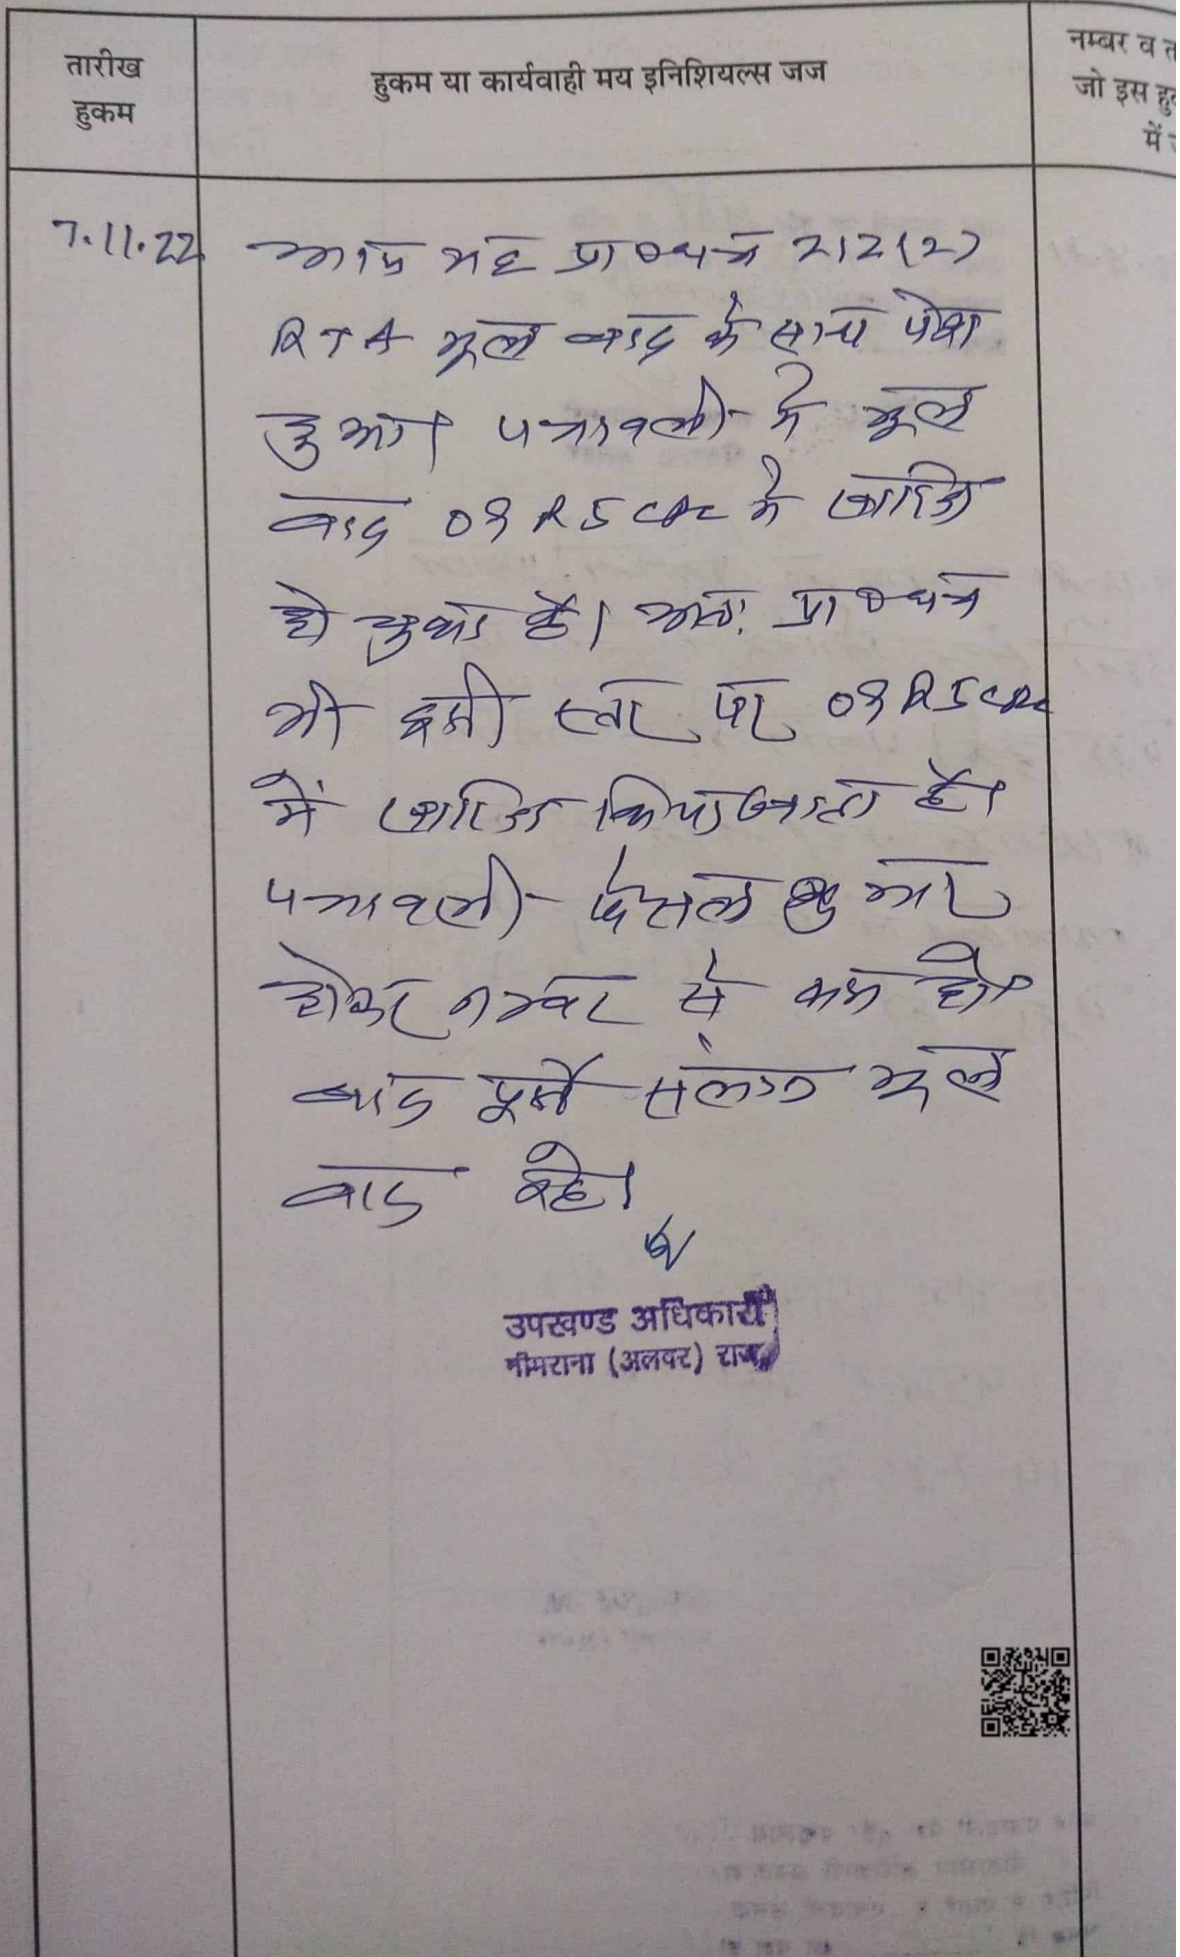 तारीख
हुकम
हुकम या कार्यवाही मय इनिशियल्स जज
नम्बर व त
जो इस हु
में
7.11.22
आज यह प्रा० पत्र 212(2)
RTA मूल वाद के साथ पेश
हुआ। पत्रावली में मूल
वाद 09 R5 CPC में खारिज
हो चुका है। अतः प्रा० पत्र
भी इसी स्तर पर 09 R5 CPC
में खारिज किया जाता है।
पत्रावली फैसल शुमार
होकर नम्बर से कम हो।
बाद पूर्ति संलग्न मूल
वाद रहे।
उपखण्ड अधिकारी
नीमराना (अलवर) राज.